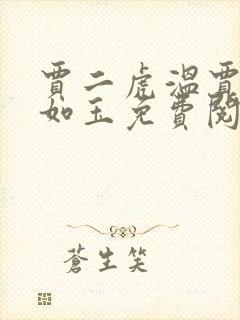 賈二虎溫賈
如玉免費閱
蒼生笑